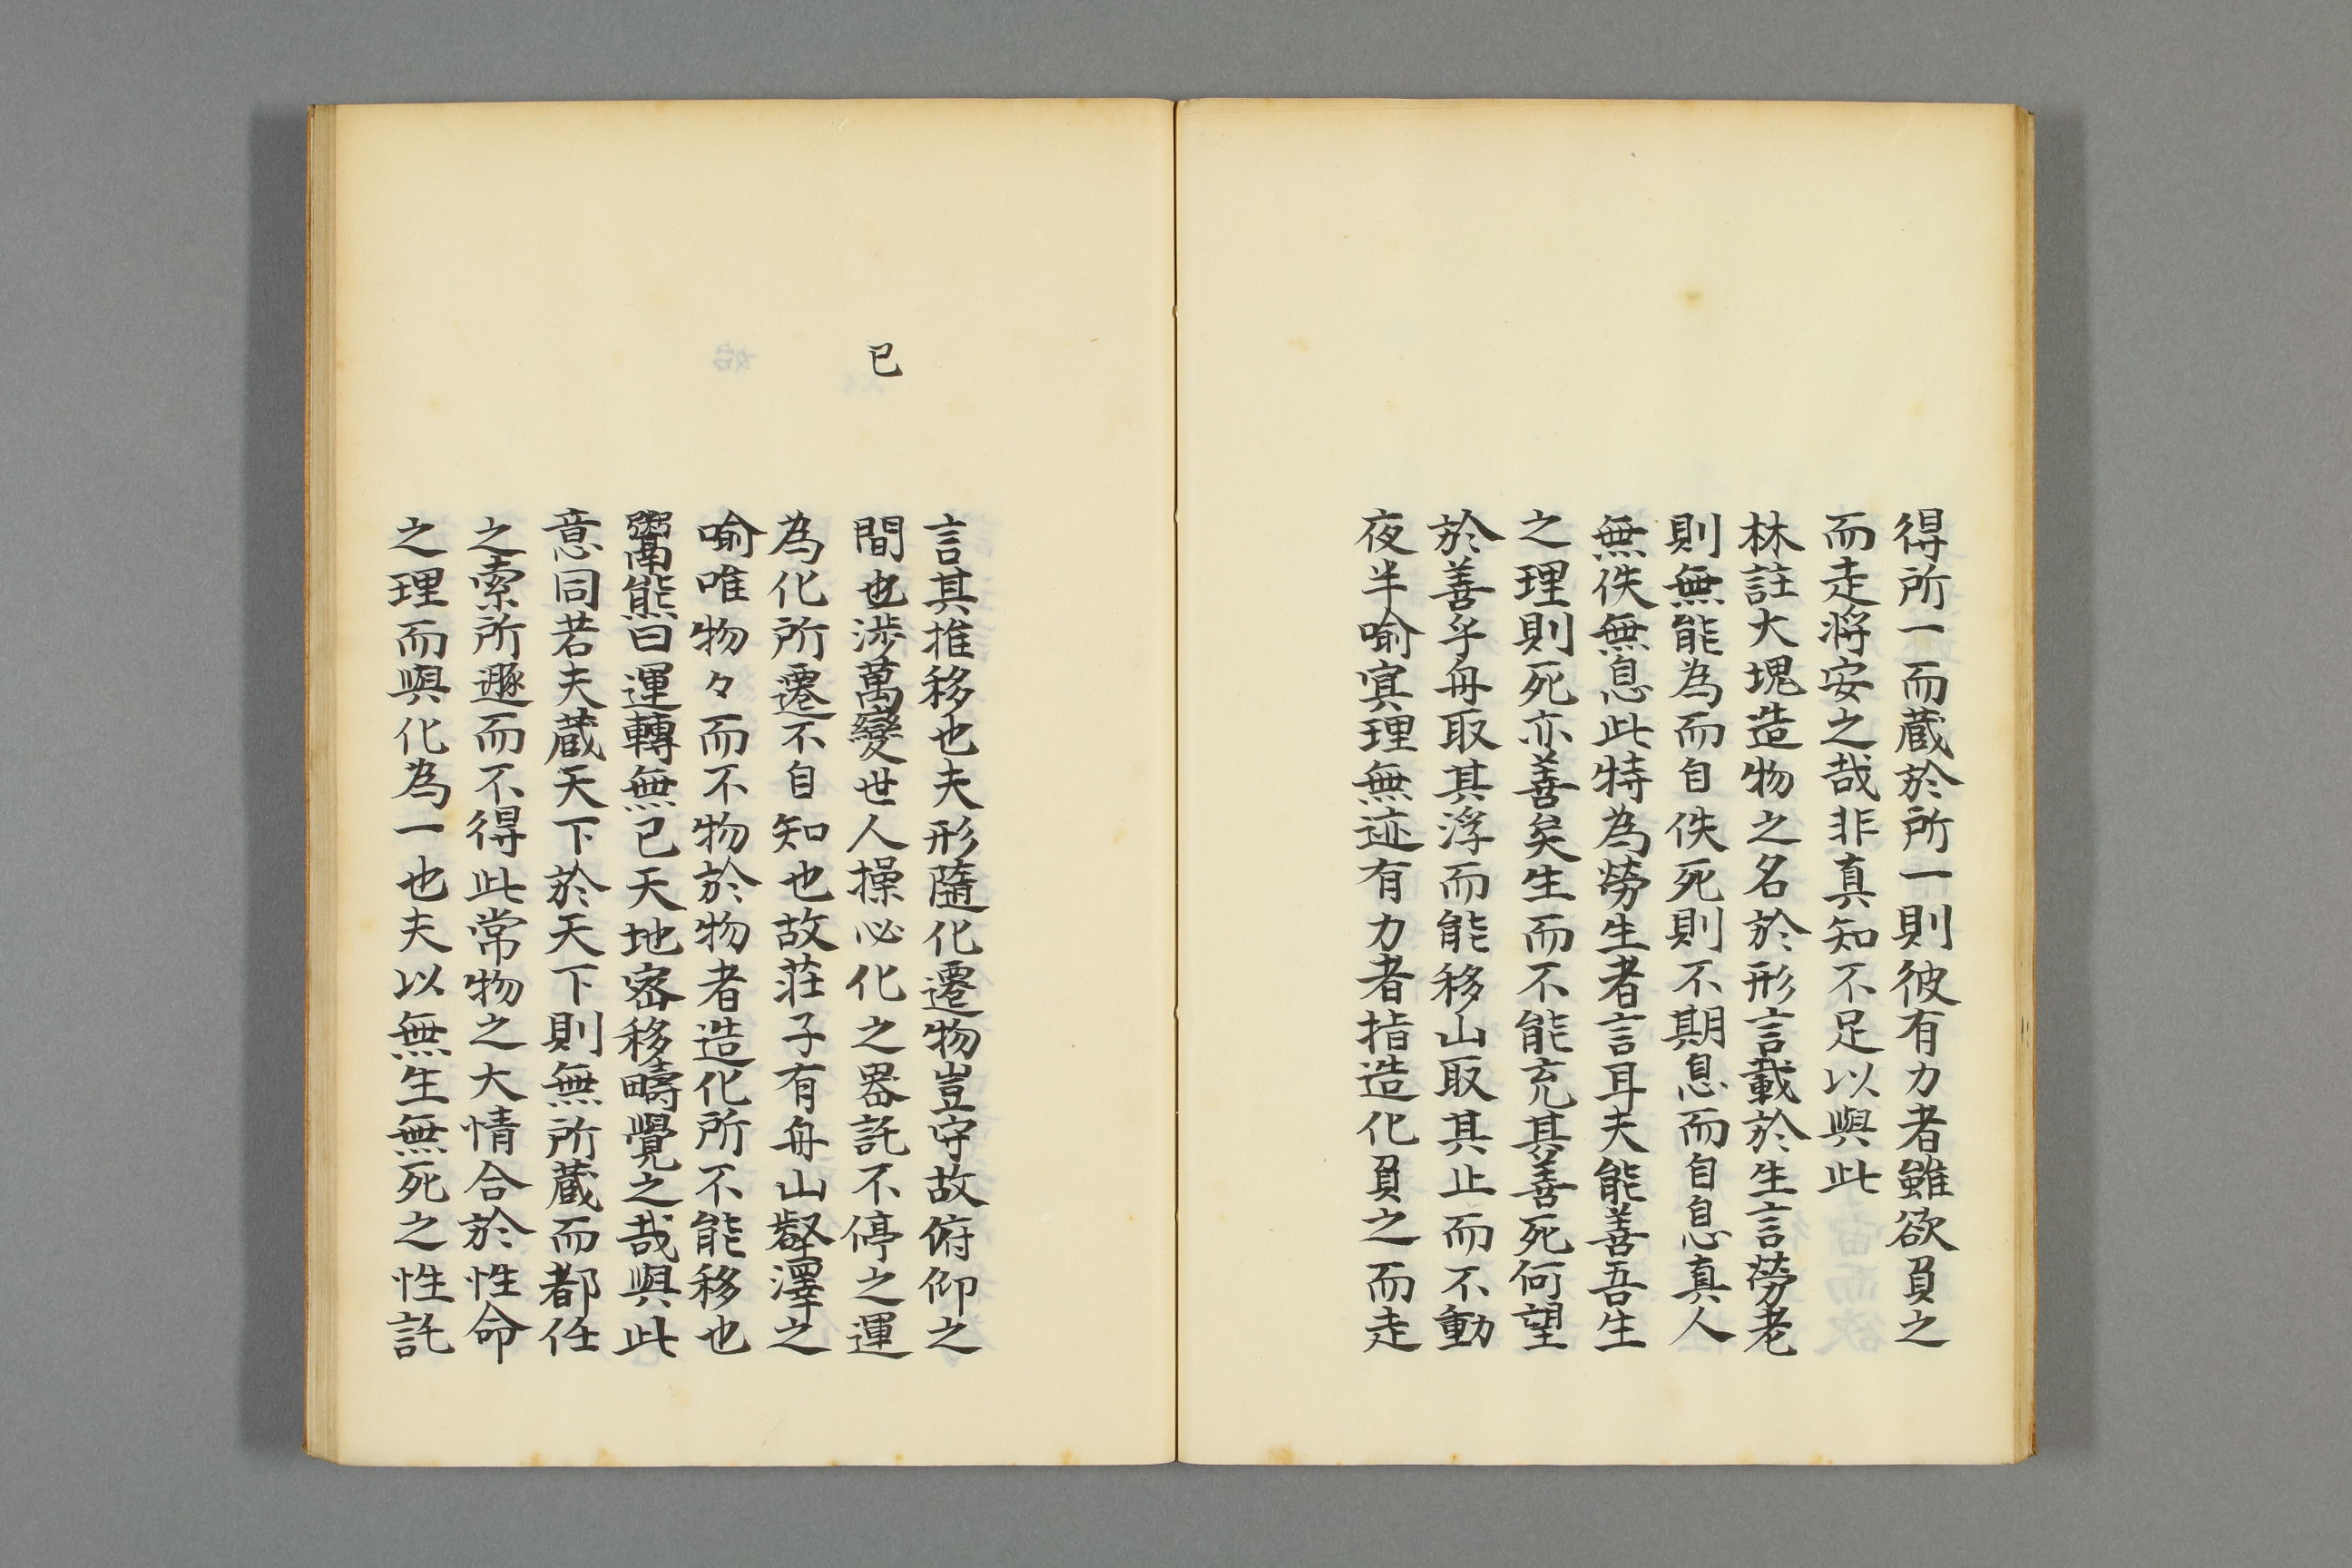 得所一而蔵於所一則彼有力者雖欲負之
而走将安之哉非真知不足以與此
林註大塊造物之名於形言載於生言勞老
則無能為而自佚死則不期息而自息真人
無佚無息此特為勞生者言耳夫能善吾生
之理則死亦善矣生而不能充其善死何望
於善乎舟取其浮而能移山取其止而不動
夜半喻冥理無迹有力者指造化負之而走
言其推移也夫形隨化遷物豈守故俯仰之
已
間也渉萬變世人操必化之器託不停之運
為化所遷不自知也故荘子有舟山壑澤之
喻唯物々而不物於物者造化所不能移也
鬻熊曰運轉無已天地密移疇覺之哉與此
意同若夫蔵天下於天下則無所蔵而都任
之索所遯而不得此常物之大情合於性命
之理而與化為一也夫以無生無死之性託